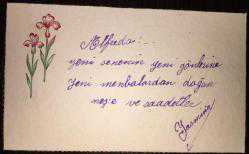 Alfreda!..
yeni senenin yeni günlerine
yeni menbalardan doğan
neş'e ve saadetler
Yasmina